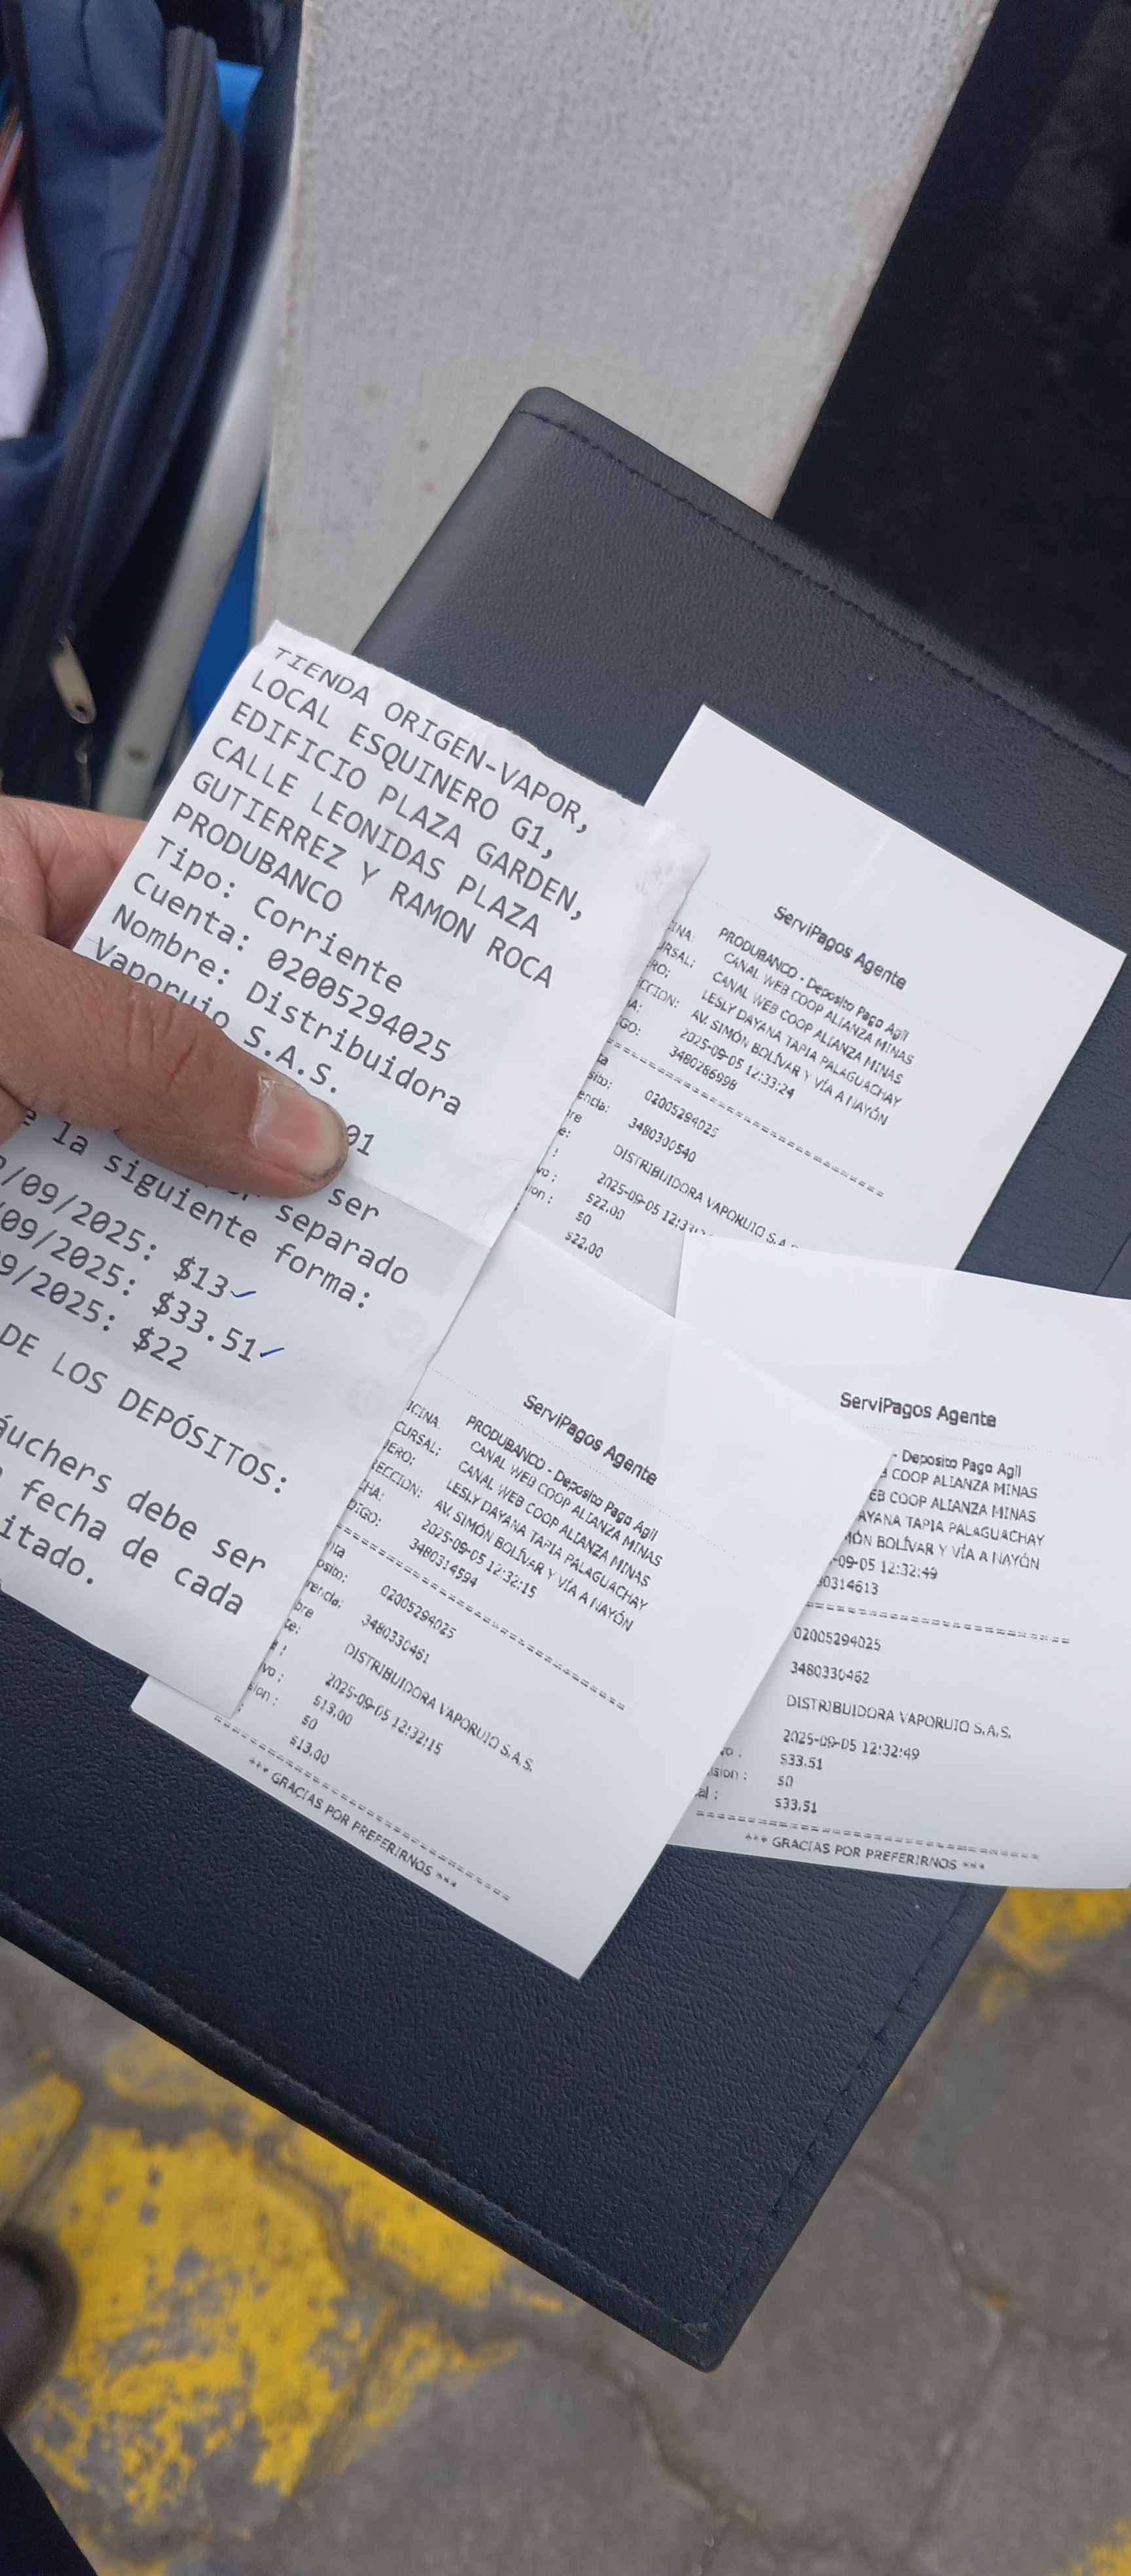 TIENDA ORIGEN-VAPOR,
LOCAL ESQUINERO G1,
EDIFICIO PLAZA GARDEN,
CALLE LEONIDAS PLAZA
GUTIERREZ Y RAMON ROCA
PRODUBANCO
Tipo: Corriente
Cuenta: 02005294025
Nombre: Distribuidora
Vaporujo S.A.S.
01
ser
separado
e la siguiente forma:
/09/2025: $13
/09/2025: $33.51
9/2025: $22
DE LOS DEPÓSITOS:
áuchers debe ser
fecha de cada
itado.
ServiPagos Agente
INA: PRODUBANCO - Deposito Pago Agil
URSAL: CANAL WEB COOP ALIANZA MINAS
RO: CANAL WEB COOP ALIANZA MINAS
LESLY DAYANA TAPIA PALAGUACHAY
CCION: AV. SIMÓN BOLÍVAR Y VÍA A NAYÓN
HA: 2025-09-05 12:33:24
IGO: 3480286998
02005294025
sito:
3480300540
encia:
DISTRIBUIDORA VAPORUJO S.A.
2025-09-05 12:33:
vo : $22.00
ion : $0
$22.00
ServiPagos Agente
ICINA PRODUBANCO - Deposito Pago Agil
CURSAL: CANAL WEB COOP ALIANZA MINAS
JERO: CANAL WEB COOP ALIANZA MINAS
LESLY DAYANA TAPIA PALAGUACHAY
RECCION: AV. SIMÓN BOLÍVAR Y VÍA A NAYÓN
CHA: 2025-09-05 12:32:15
DIGO: 3480314594
nta
osito: 02005294025
rencia: 3480330461
bre
te: DISTRIBUIDORA VAPORUJO S.A.S.
2025-09-05 12:32:15
vo : $13.00
sion : $0
$13.00
*** GRACIAS POR PREFERIRNOS ***
ServiPagos Agente
- Deposito Pago Agil
B COOP ALIANZA MINAS
EB COOP ALIANZA MINAS
AYANA TAPIA PALAGUACHAY
MÓN BOLÍVAR Y VÍA A NAYÓN
-09-05 12:32:49
80314613
02005294025
3480330462
DISTRIBUIDORA VAPORUJO S.A.S.
2025-09-05 12:32:49
vo : $33.51
ision : $0
al : $33.51
*** GRACIAS POR PREFERIRNOS ***